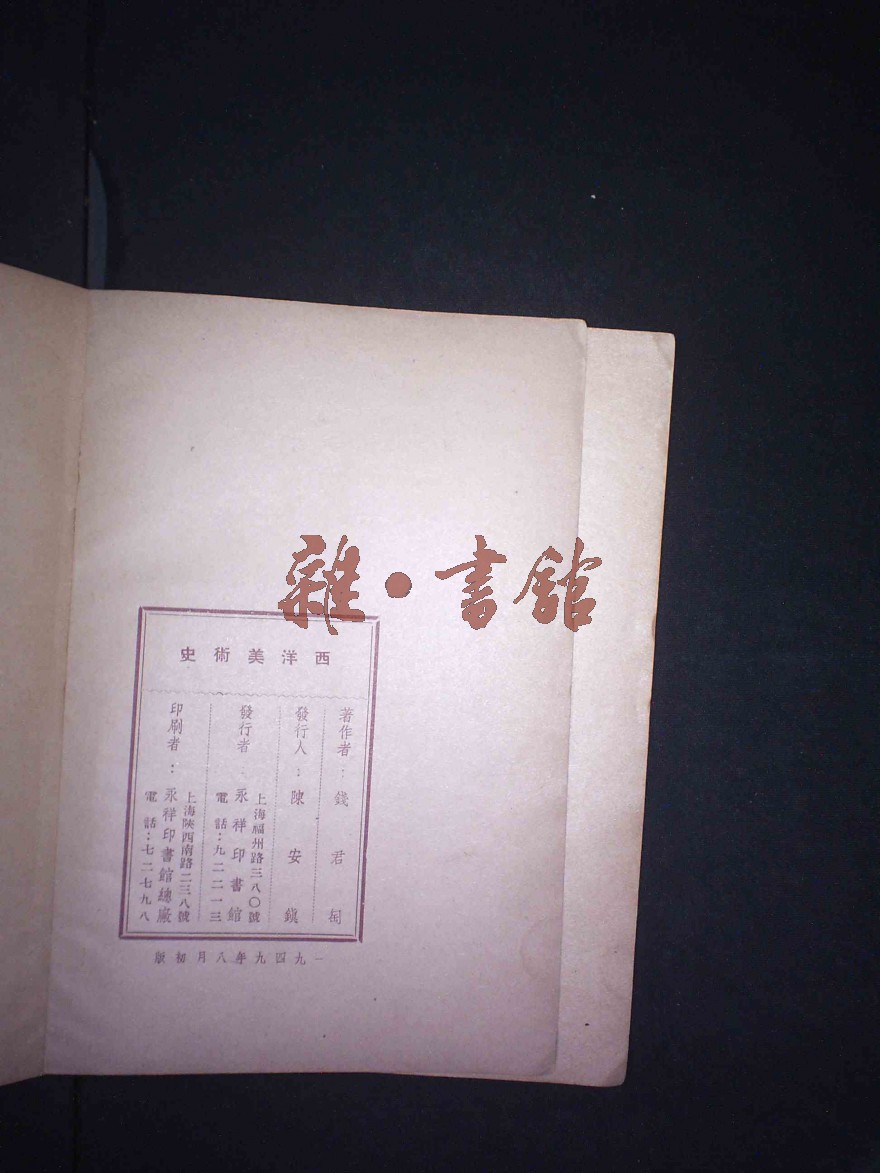 雜·書館
西洋美術史
著作者：錢君匋
發行人：陳安鎮
上海福州路三八〇號
發行者：永祥印書館
電話：九二二一三
上海陝西南路二三八號
印刷者：永祥印書館總廠
電話：七二七九八
一九四九年八月初版